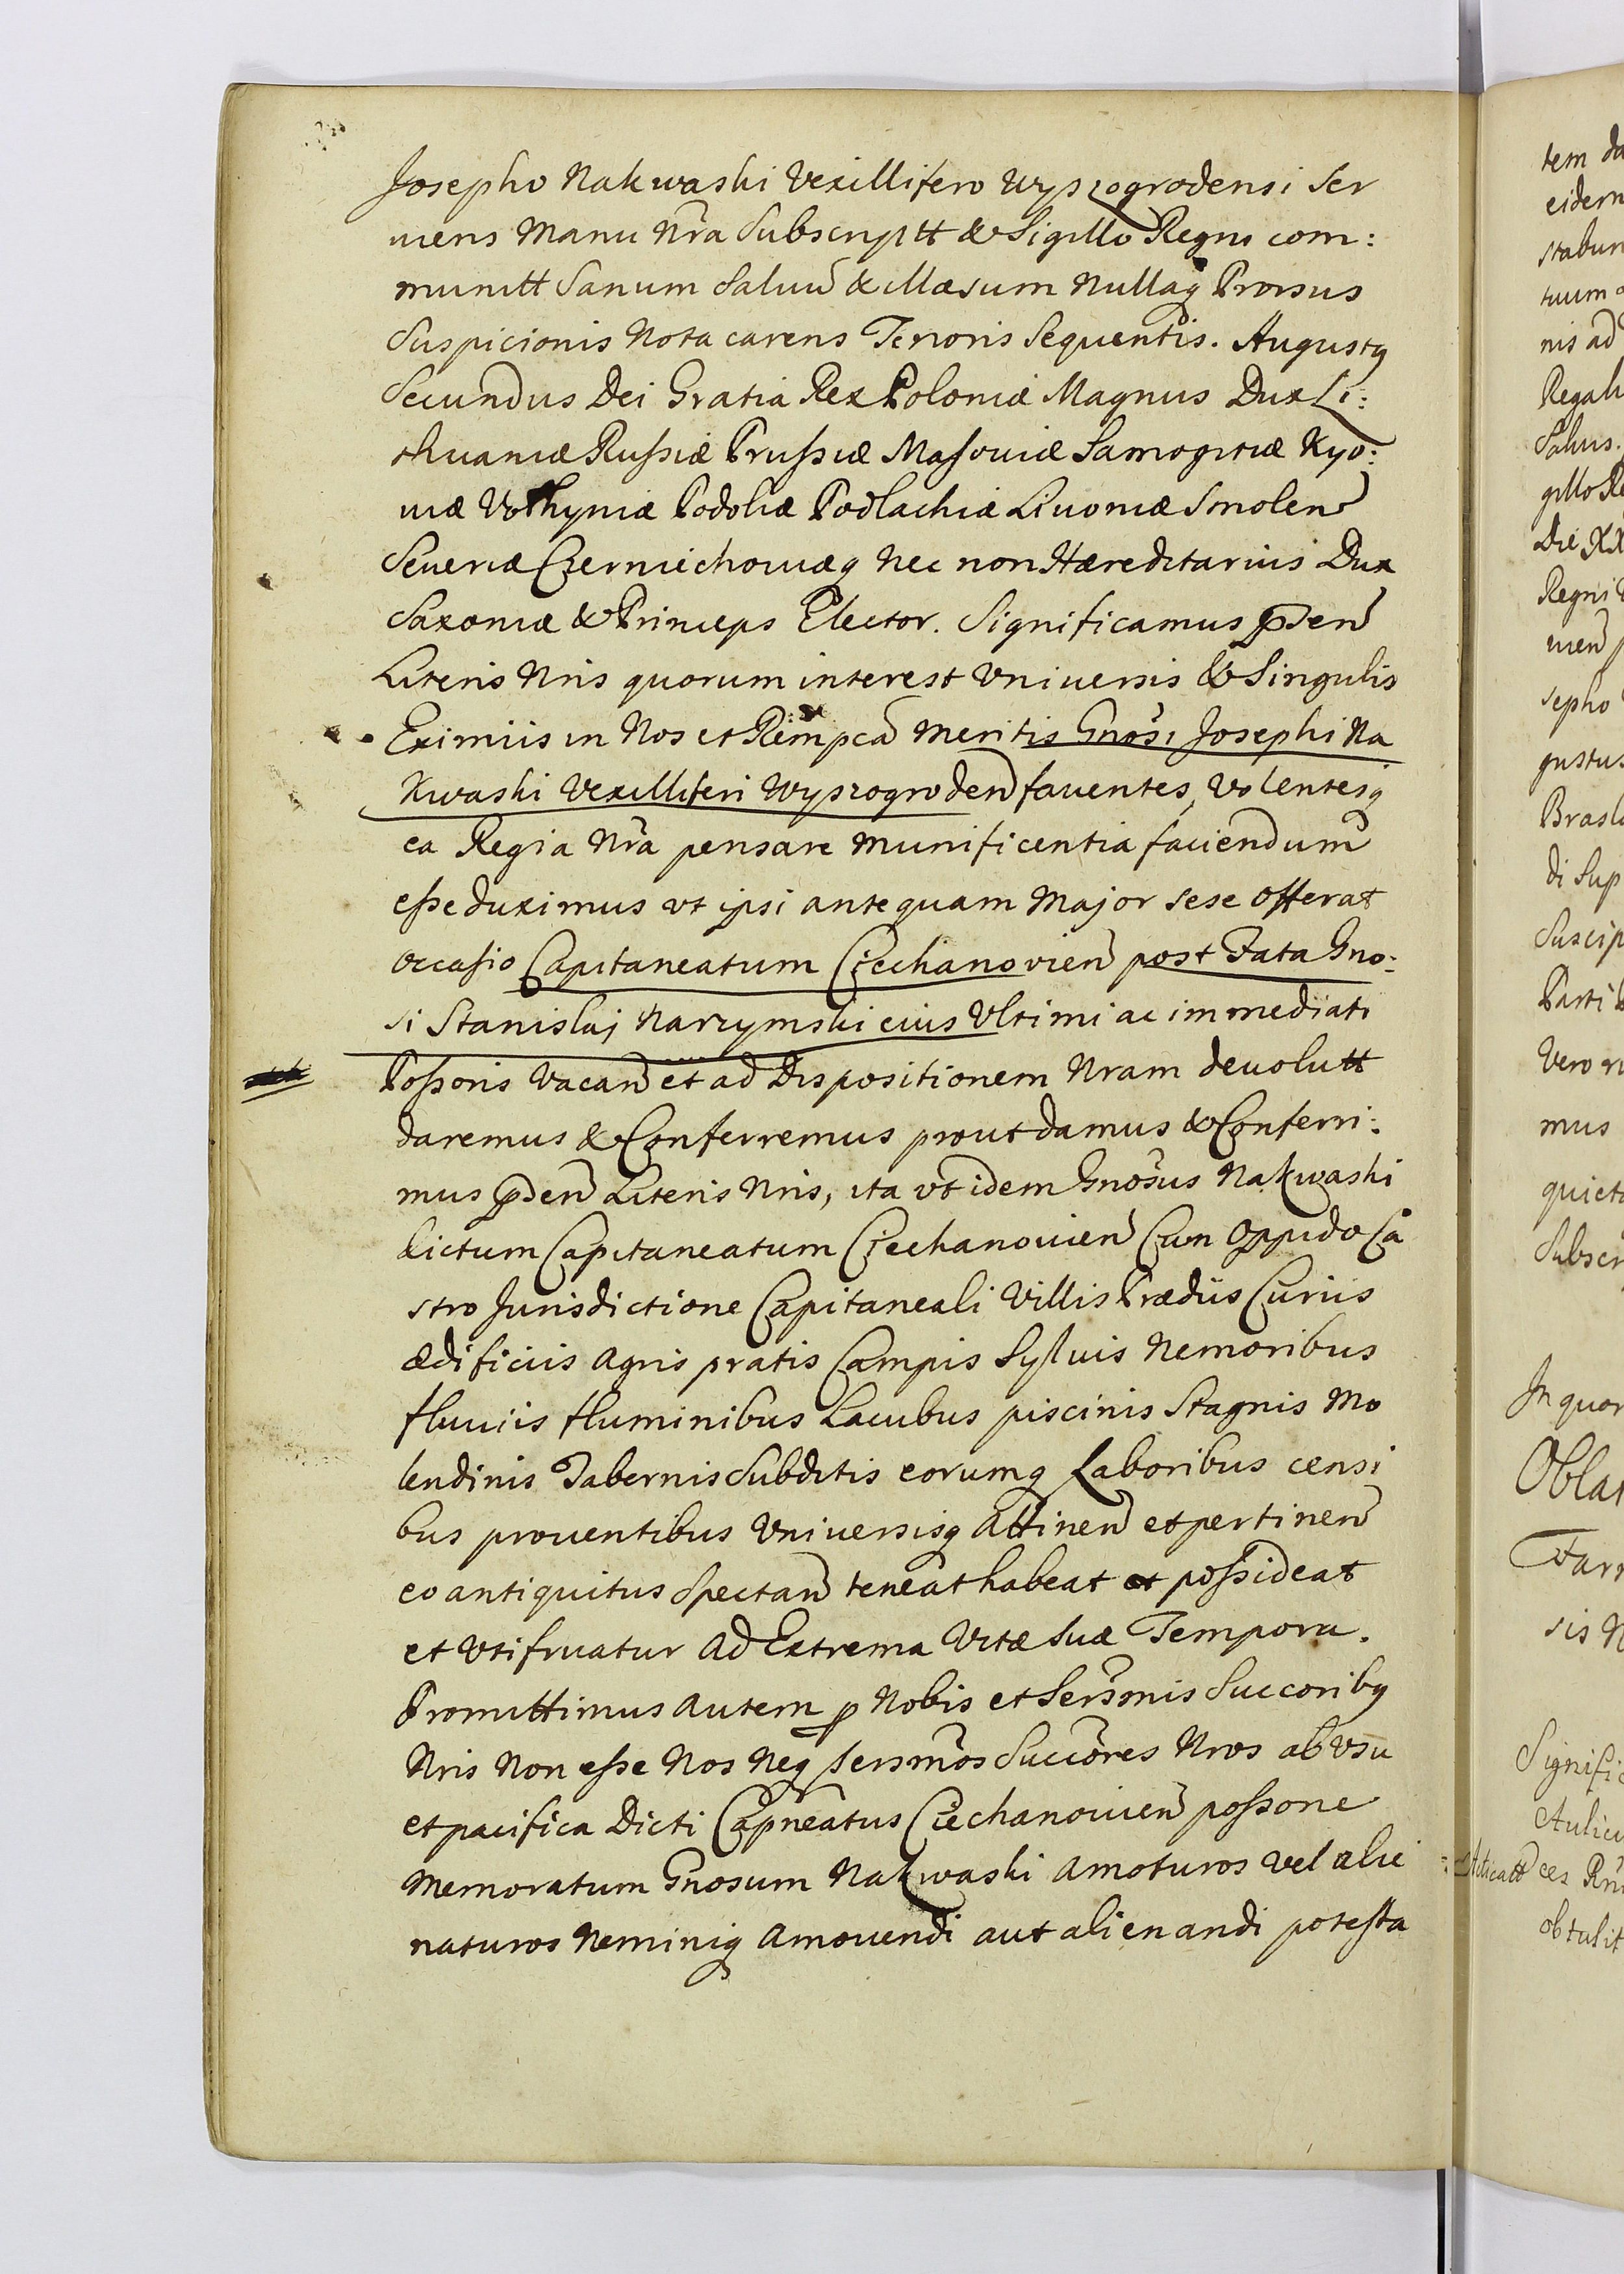 Josepho Nakwaski Vexillifero Wyszogrodensi Ser
uiens Manu Nra Subscriptt & Sigillo Regni com:
munitt Sanum Saluu & illæsum Nullaq Prorsus
Suspicionis Nota carens Tenoris Sequentis. Augustq
Secundus Dei Gratia Rex Poloniæ Magnus Dux Li:
thuaniæ Russiæ Prussiæ Masouiæ Samogitiæ Kyo:
uiæ Volhyniæ Podoliæ Podlachiæ Liuoniæ Smolen
Seueriæ Czerniechouiæq Nec non Hæreditarius Dux
Saxoniæ & Princeps Elector. Significamus pden
Literis Nris quorum interest Vniuersis & Singulis
Eximiis in Nos et Rempca Meritis Gnosi Josephi Na
Kwaski Vexilliferi Wyszogroden fauentes, Volentesq
ea Regia Nra pensare Munificentia faciendum
esse duximus vt ipsi antequam Major sese offerat
occasio Capitaneatum Ciechanovien post Fata Gno:
si Stanislaj Narzymski eius Vltimi ac immediati
Possoris Vacan et ad Dispositionem Nram deuolutt
daremus & Conferremus prout damus & Conferri:
mus pden Literis Nris, ita vt idem Gnosus Nakwaski
dictum Capitaneatum Ciechanouien Cum Oppido Ca
stro Jurisdictione Capitaneali Villis Prædiis Curiis
ædificiis Agris pratis Campis Syluis Nemoribus
fluuiis fluminibus Lacubus piscinis Stagnis Mo
lendinis Tabernis Subditis eorumq Laboribus censi
bus prouentibus Vniuersisq Attinen et pertinen
eo antiquitus Spectan teneat habeat et possideat
et Vtifruatur Ad Extrema Vitæ Suæ Tempora.
Promittimus Autem p Nobis et Sersmis Succoribq
Nris Non esse Nos Neq sersmos Succores Nros ab Vsu
et pacifica Dicti Capneatus Ciechanouien possone
Memoratum Gnosum Nakwaski Amoturos Vel alie
naturos Neminiq Amouendi aut alienandi potesta
tem da
eidem
stabun
tuum
nis ad
Regali
Salus.
gillo Re
Die XX
Regni
uien
sepho
gustus
Brasla
di Sup
Suscip
Parti
Vero
mus
quiet
Subscr
In quor
Oblat
Farn
sis N
Signifi
Aulicu
ces
obtulit